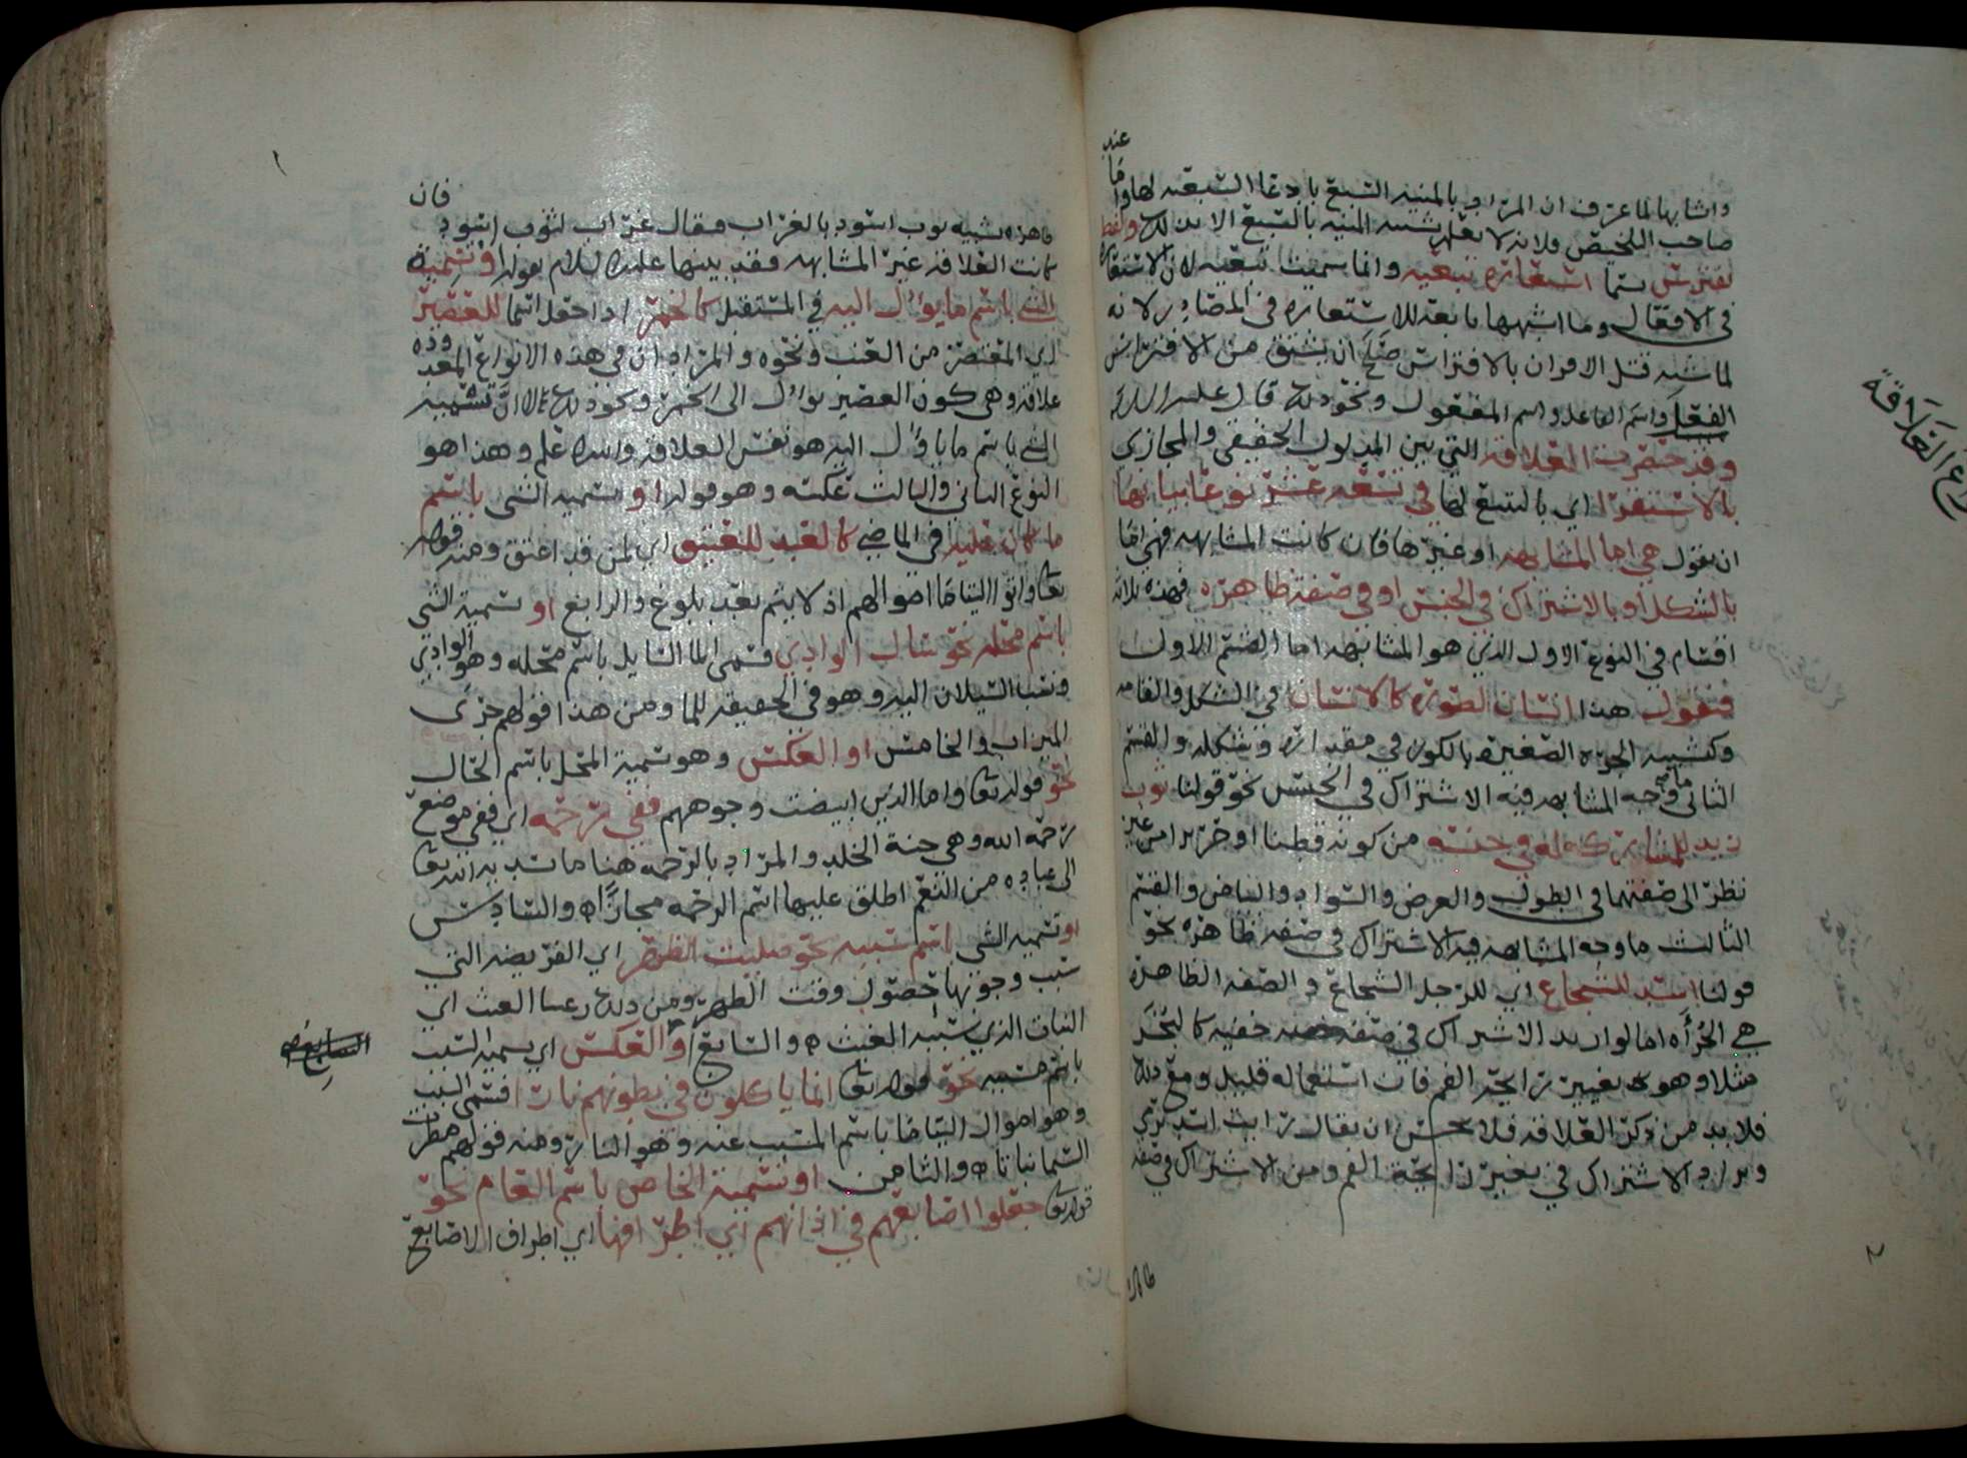 عند
واشابها لما عرف ان المراد بالمنيه السبع بادعا السبعيه لها واما
صاحب التلخيص فلانه لا تشبيه المنيه بالسبع الا بذلك ولفظ
تفترس يسما استعاره تبعيه وانما سميت تبعيه لان الاستعاره
في الافعال وما اشبهها تابعه للاستعاره في المصادر لانه
لما شبه قتل الاقران بالافتراس صح ان يشتق من الافتراس
الفعل واسم الفاعل واسم المفعول ونحو ذلك قال عليه السلام
وقد حصرت العلاقه التي بين المدلول الحقيقي والمجازي
بالاستقرا اي بالتتبع لها في تسعه عشر نوعا بيانها
ان نقول هي اما المشابهه او غيرها فان كانت المشابهه فهي اما
بالشكل او بالاشتراك في الجنس او في صفه ظاهره فهذه ثلاثه
اقسام في النوع الاول الذي هو المشابهه اما القسم الاول
فنقول هذا انسان لصوره كالانسان في الشكل والقامه
وكتشبيه الجره الصغيره بالكوز في مقداره وشكله والقسم
الثاني ما وجه المشابهه فيه الاشتراك في الجنس نحو قولنا ثوب
زيد للمشارك له في جنسه من كونه قطنا او حريرا من غير
نظر الى صفتهما في الطول والعرض والسواد والبياض والقسم
الثالث ما وجه المشابهه فيه الاشتراك في صفه ظاهره نحو
قولنا اسد للشجاع اي للرجل الشجاع و الصفه الظاهره
هي الجرأه اما لو اريد الاشتراك في صفه خفيه كالبخر
مثلا وهو تغيير رايحة الفم فان استعماله قليل ومع ذلك
فلا بد من ذكر العلاقه فلا يحسن ان يقال رايت اسد يرمي
ويراد الاشتراك في تغيير رايحة الفم ومن الاشتراك في صفه
ظاهره
انواع العلاقة
ظاهره تشبيه ثوب اسود بالغراب فيقال غراب لثوب اسود
فان
كانت العلاقه غير المشابهه فقد بينها عليه السلام بقوله او تسمية
الشي باسم ما يؤل اليه في المستقبل كالخمر اذا جعل اسما للعصير
اي المعتصر من العنب ونحوه والمراد ان في هذه الانواع المعدوده
علاقه وهي كون العصير يؤل الى الخمر ونحو ذلك لا ان تسمية
الشي باسم ما يؤل اليه هو نفس العلاقه والله اعلم وهذا هو
النوع الثاني والثالث عكسه وهو قوله او تسميه الشي باسم
ما كان عليه في الماضي كالعبد للمعتق اي لمن قد اعتق ومنه قوله
تعا واتوا اليتاما اموالهم اذ لا يتم بعد بلوغ والرابع او تسمية الشي
باسم محله نحو سال الوادي فسمى الما السايل باسم محله وهو الوادي
ونسب السيلان اليه وهو في الحقيقه للما ومن هذا قولهم جرى
الميزاب والخامس او العكس وهو تسمية المحل باسم الحال
نحو قوله تعا واما الذين ابيضت وجوههم ففي رحمه اي ففي موضع
رحمه الله وهي جنة الخلد والمراد بالرحمه هنا ما
الى عباده من النعم اطلق عليها اسم الرحمه مجازا والسادس
او تسميه الشي باسم سببه نحو صليت الظهر اي الفريضه التي
سبب وجوبها حصول وقت الظهر ومن ذلك رعينا الغيث اي
النبات الذي سببه الغيث والسابع او العكس اي تسميه السبب
باسم مسببه نحو قوله تعا انما ياكلون في بطونهم نارا فسمى السبب
وهو اموال اليتاما باسم المسبب عنه وهو النار ومنه قولهم مطرت
السما نباتا والثامن او تسمية الخاص باسم العام نحو
قوله تعا جعلوا اصابعهم في اذانهم اي اطرافها اي اطراف الاصابع